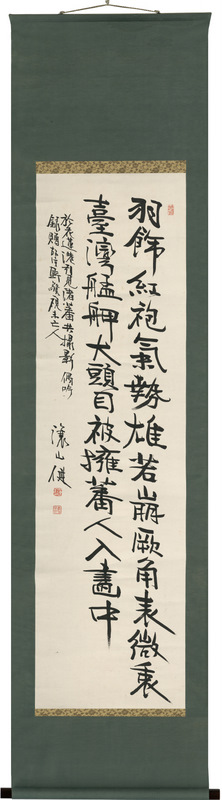 羽飾紅袍氣勢雄若崩厥角表微衷
臺灣艋舺大頭目被擁蕃人入畫中
於花蓮港 見諸蕃共攝影偶吟
錄贈
山